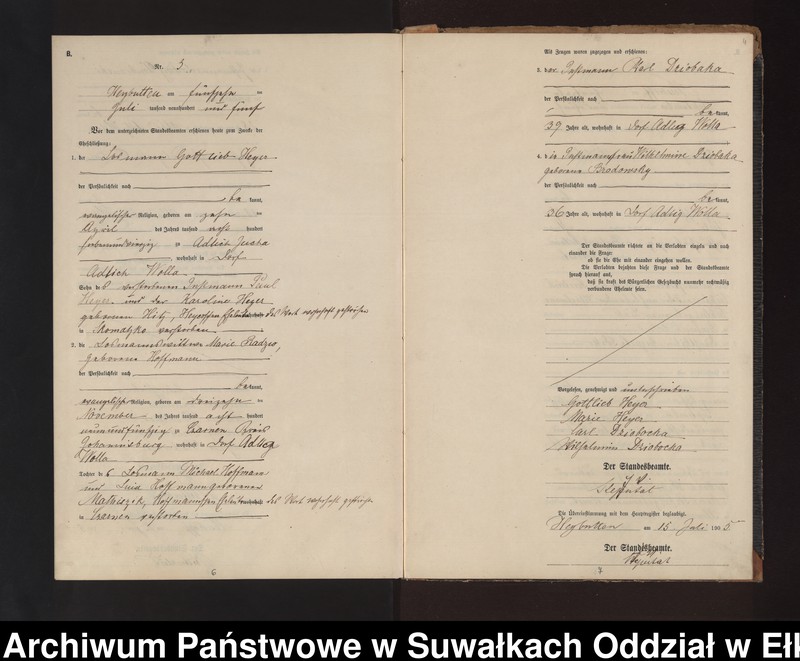 8.
Nr. 3
Heybutten am fünfzehn ten
Juli tausend neunhundert und fünf
Vor dem unterzeichneten Standesbeamten erschienen heute zum Zwecke der
Eheschließung:
1. der Losmann Gottlieb Heyer
der Persönlichkeit nach
be kannt,
evangelischer Religion, geboren am zehn ten
April des Jahres tausend acht hundert
siebenundsiebzig in Adlich Jucha
, wohnhaft in Dorf
Adlich Wolla
Sohn des verstorbenen Instmann Paul
Heyer und der Karoline Heyer
geborenen, Heyerschen Eheleute das Wort wohnhaft gestrichen
in verstorben
2. die Losmannswittwe Marie
geborene Hoffmann
der Persönlichkeit nach
be kannt,
evangelischer Religion, geboren am dreizehn ten
November des Jahres tausend acht hundert
neunundfünfzig in Czarnen Kreis
Johannisburg wohnhaft in Dorf Adlig
Wolla
Tochter des Losmann Michael Hoffmann
und Hoffmann geborenen
Hoffmannschen Eheleute das Wort wohnhaft gestrichen
in Czarnen verstorben
6
Als Zeugen waren zugezogen und erschienen:
3. der Instmann Karl Dziobaka
der Persönlichkeit nach
be kannt,
37 Jahre alt, wohnhaft in Dorf Adlig Wolla
4. die Instmannsfrau Wilhelmine Dziobaka
geborene Brodowsky
der Persönlichkeit nach
be kannt,
36 Jahre alt, wohnhaft in Dorf Adlig Wolla
Der Standesbeamte richtete an die Verlobten einzeln und nach
einander die Frage:
ob sie die Ehe mit einander eingehen wollen.
Die Verlobten bejahten diese Frage und der Standesbeamte
sprach hierauf aus,
daß sie kraft des Bürgerlichen Gesetzbuchs nunmehr rechtmäßig
verbundene Eheleute seien.
Vorgelesen, genehmigt und unterschrieben
Gottlieb Heyer
Marie Heyer
Carl Dziobocka
Wilhelmine Dziobocka
Der Standesbeamte.
Die Übereinstimmung mit dem Hauptregister beglaubigt.
Heybutten am 15 Juli 1905
Der Standesbeamte.
7
Archiwum Państwowe w Suwałkach Oddział w Ełk